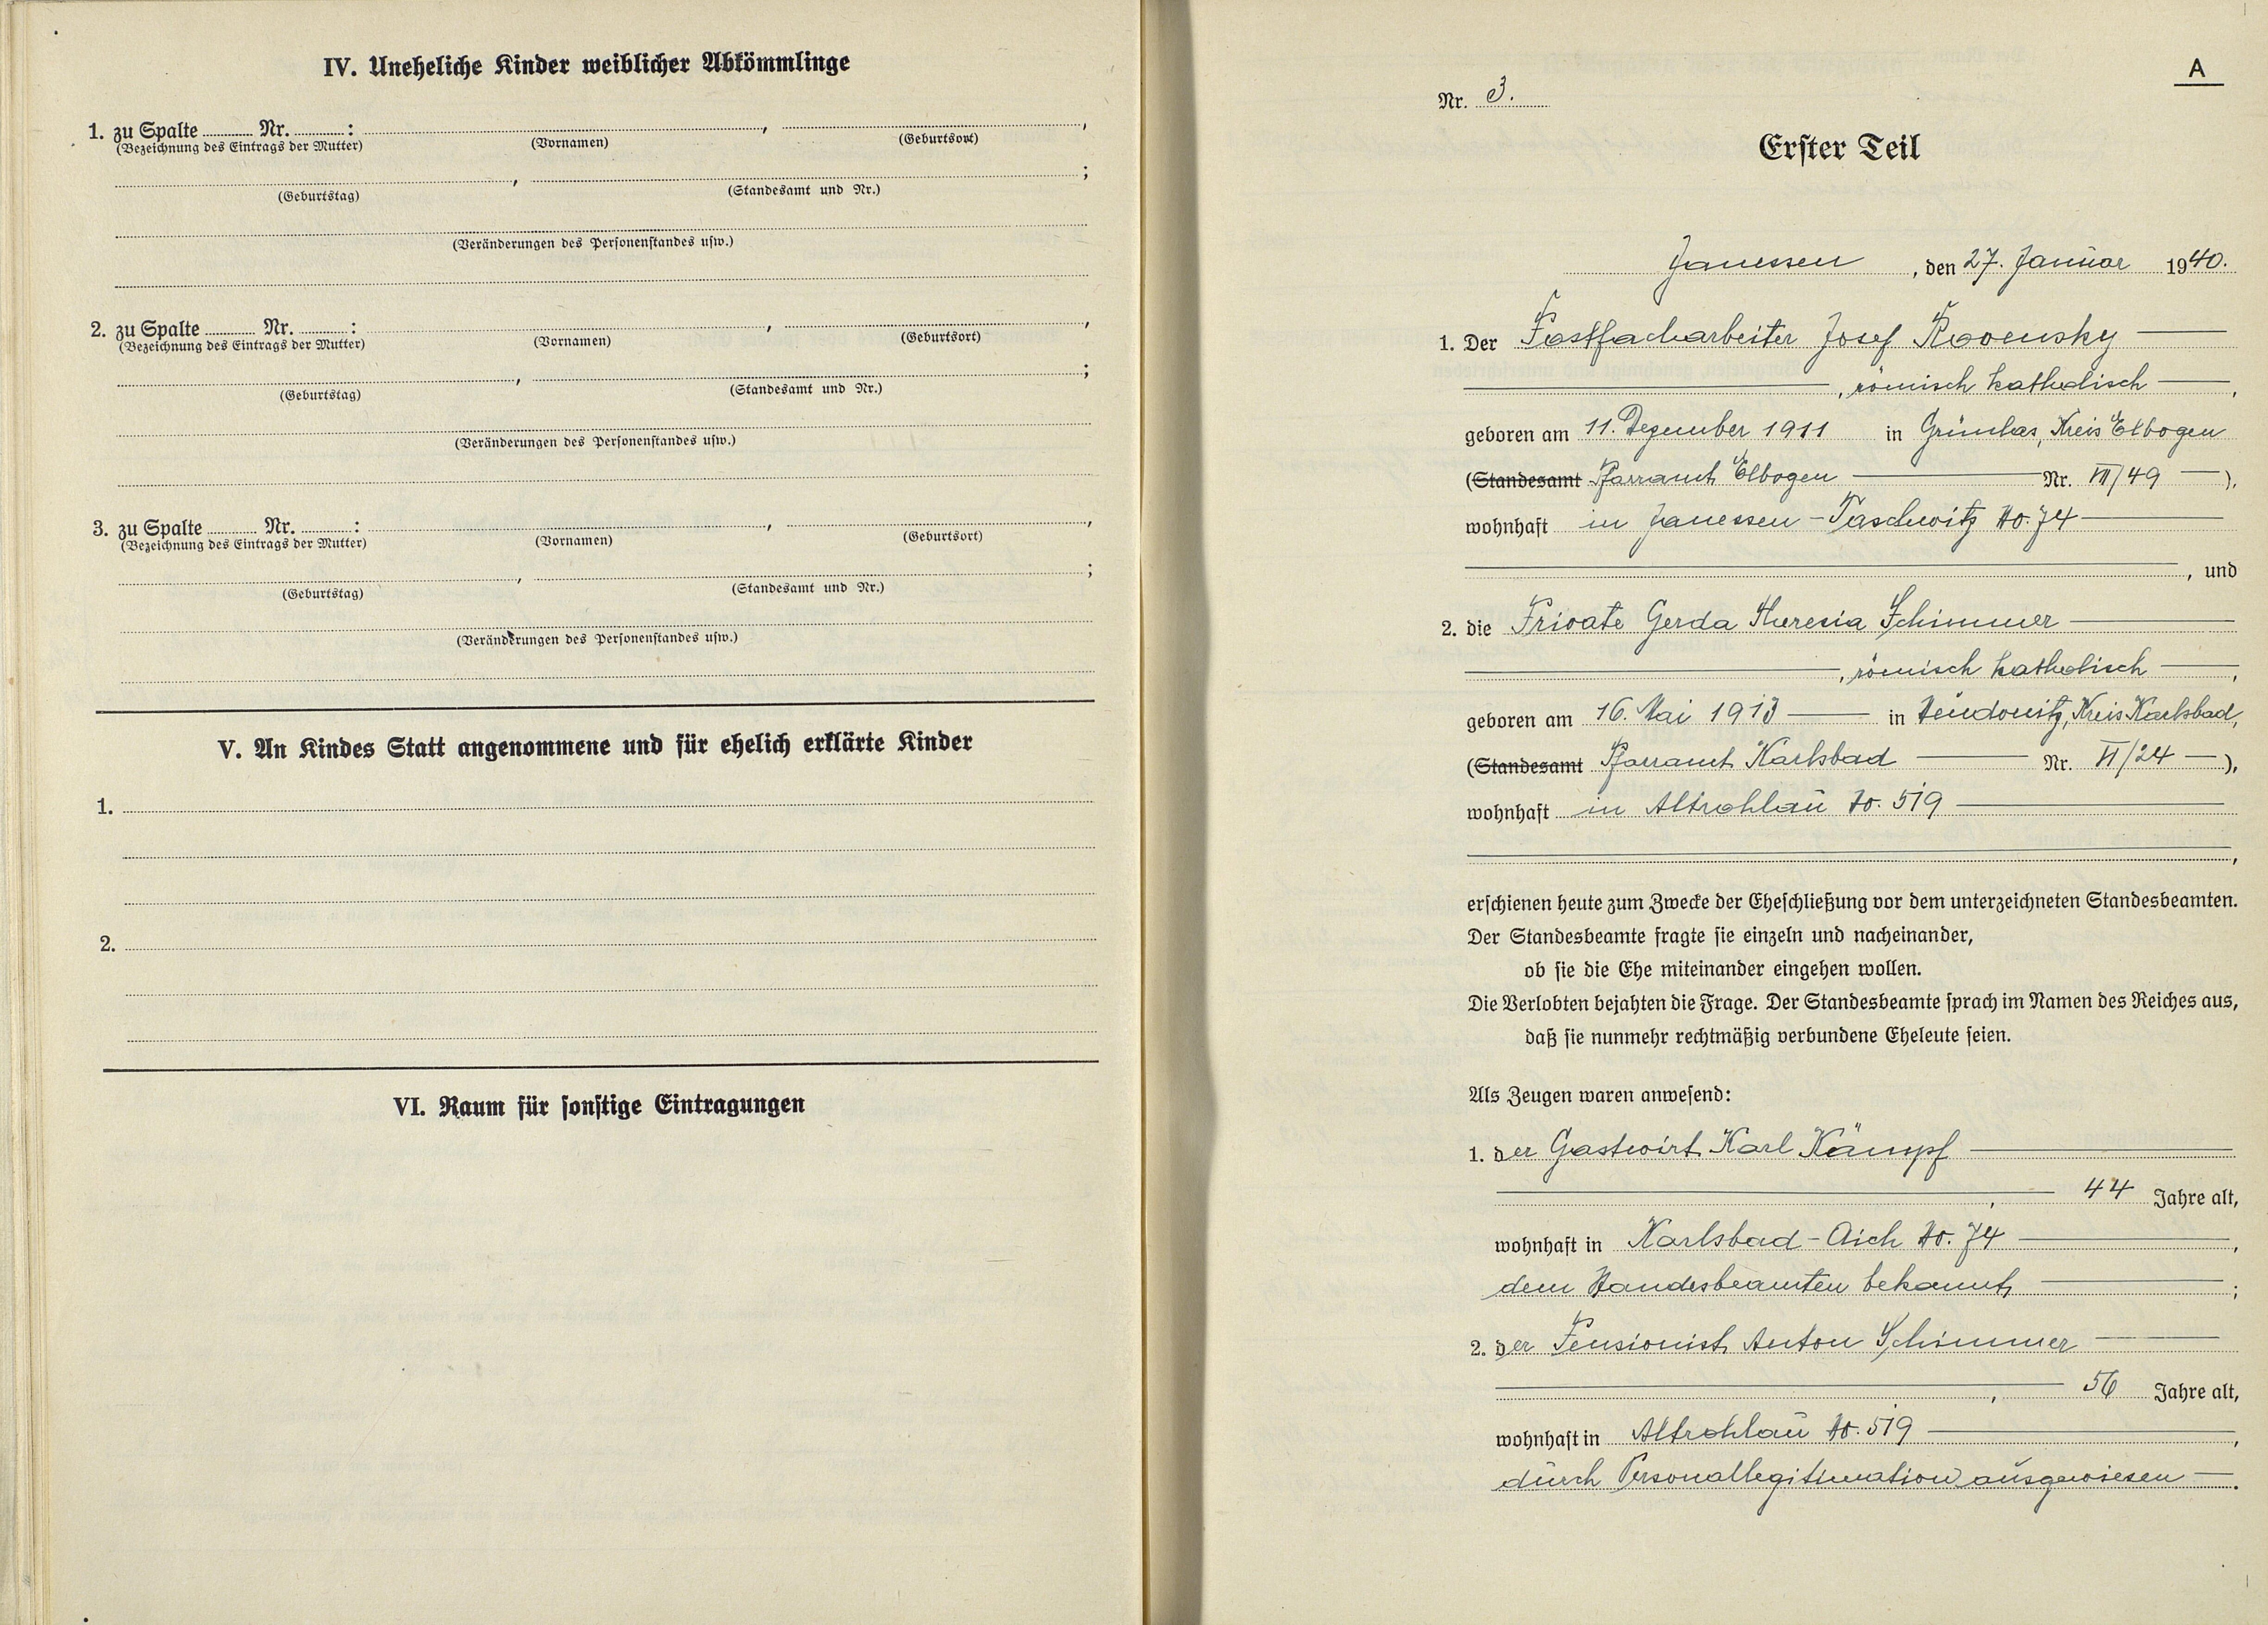 IV. Uneheliche Kinder weiblicher Abkömmlinge
1. zu Spalte Nr. : , ,
(Bezeichnung des Eintrags der Mutter) (Vornamen) (Geburtsort)
, ;
(Geburtstag) (Standesamt und Nr.)
(Veränderungen des Personenstandes usw.)
2. zu Spalte Nr. : , ,
(Bezeichnung des Eintrags der Mutter) (Vornamen) (Geburtsort)
, ;
(Geburtstag) (Standesamt und Nr.)
(Veränderungen des Personenstandes usw.)
3. zu Spalte Nr. : , ,
(Bezeichnung des Eintrags der Mutter) (Vornamen) (Geburtsort)
, ;
(Geburtstag) (Standesamt und Nr.)
(Veränderungen des Personenstandes usw.)
V. An Kindes Statt angenommene und für ehelich erklärte Kinder
1.
2.
VI. Raum für sonstige Eintragungen
A
Nr. 3.
Erster Teil
Janessen, den 27. Januar 1940.
1. Der Postfacharbeiter Josef Rovensky
, römisch katholisch,
geboren am 11. Dezember 1911 in Grünlas, Kreis Elbogen
(Standesamt Pfarramt Elbogen Nr. VII/49),
wohnhaft in Janessen-Taschwitz No. 74
, und
2. die Private Gerda Theresia Schimmer
, römisch katholisch,
geboren am 16. Mai 1913 in Děudonitz, Kreis Karlsbad,
(Standesamt Pfarramt Karlsbad Nr. VI/24),
wohnhaft in Altrohlau No. 519
,
erschienen heute zum Zwecke der Eheschließung vor dem unterzeichneten Standesbeamten.
Der Standesbeamte fragte sie einzeln und nacheinander,
ob sie die Ehe miteinander eingehen wollen.
Die Verlobten bejahten die Frage. Der Standesbeamte sprach im Namen des Reiches aus,
daß sie nunmehr rechtmäßig verbundene Eheleute seien.
Als Zeugen waren anwesend:
1. der Gastwirt Karl Kämpf
, 44 Jahre alt,
wohnhaft in Karlsbad-Aich No. 74,
dem Standesbeamten bekannt;
2. der Pensionist Anton Schimmer
, 56 Jahre alt,
wohnhaft in Altrohlau No. 519,
durch Personallegitimation ausgewiesen.